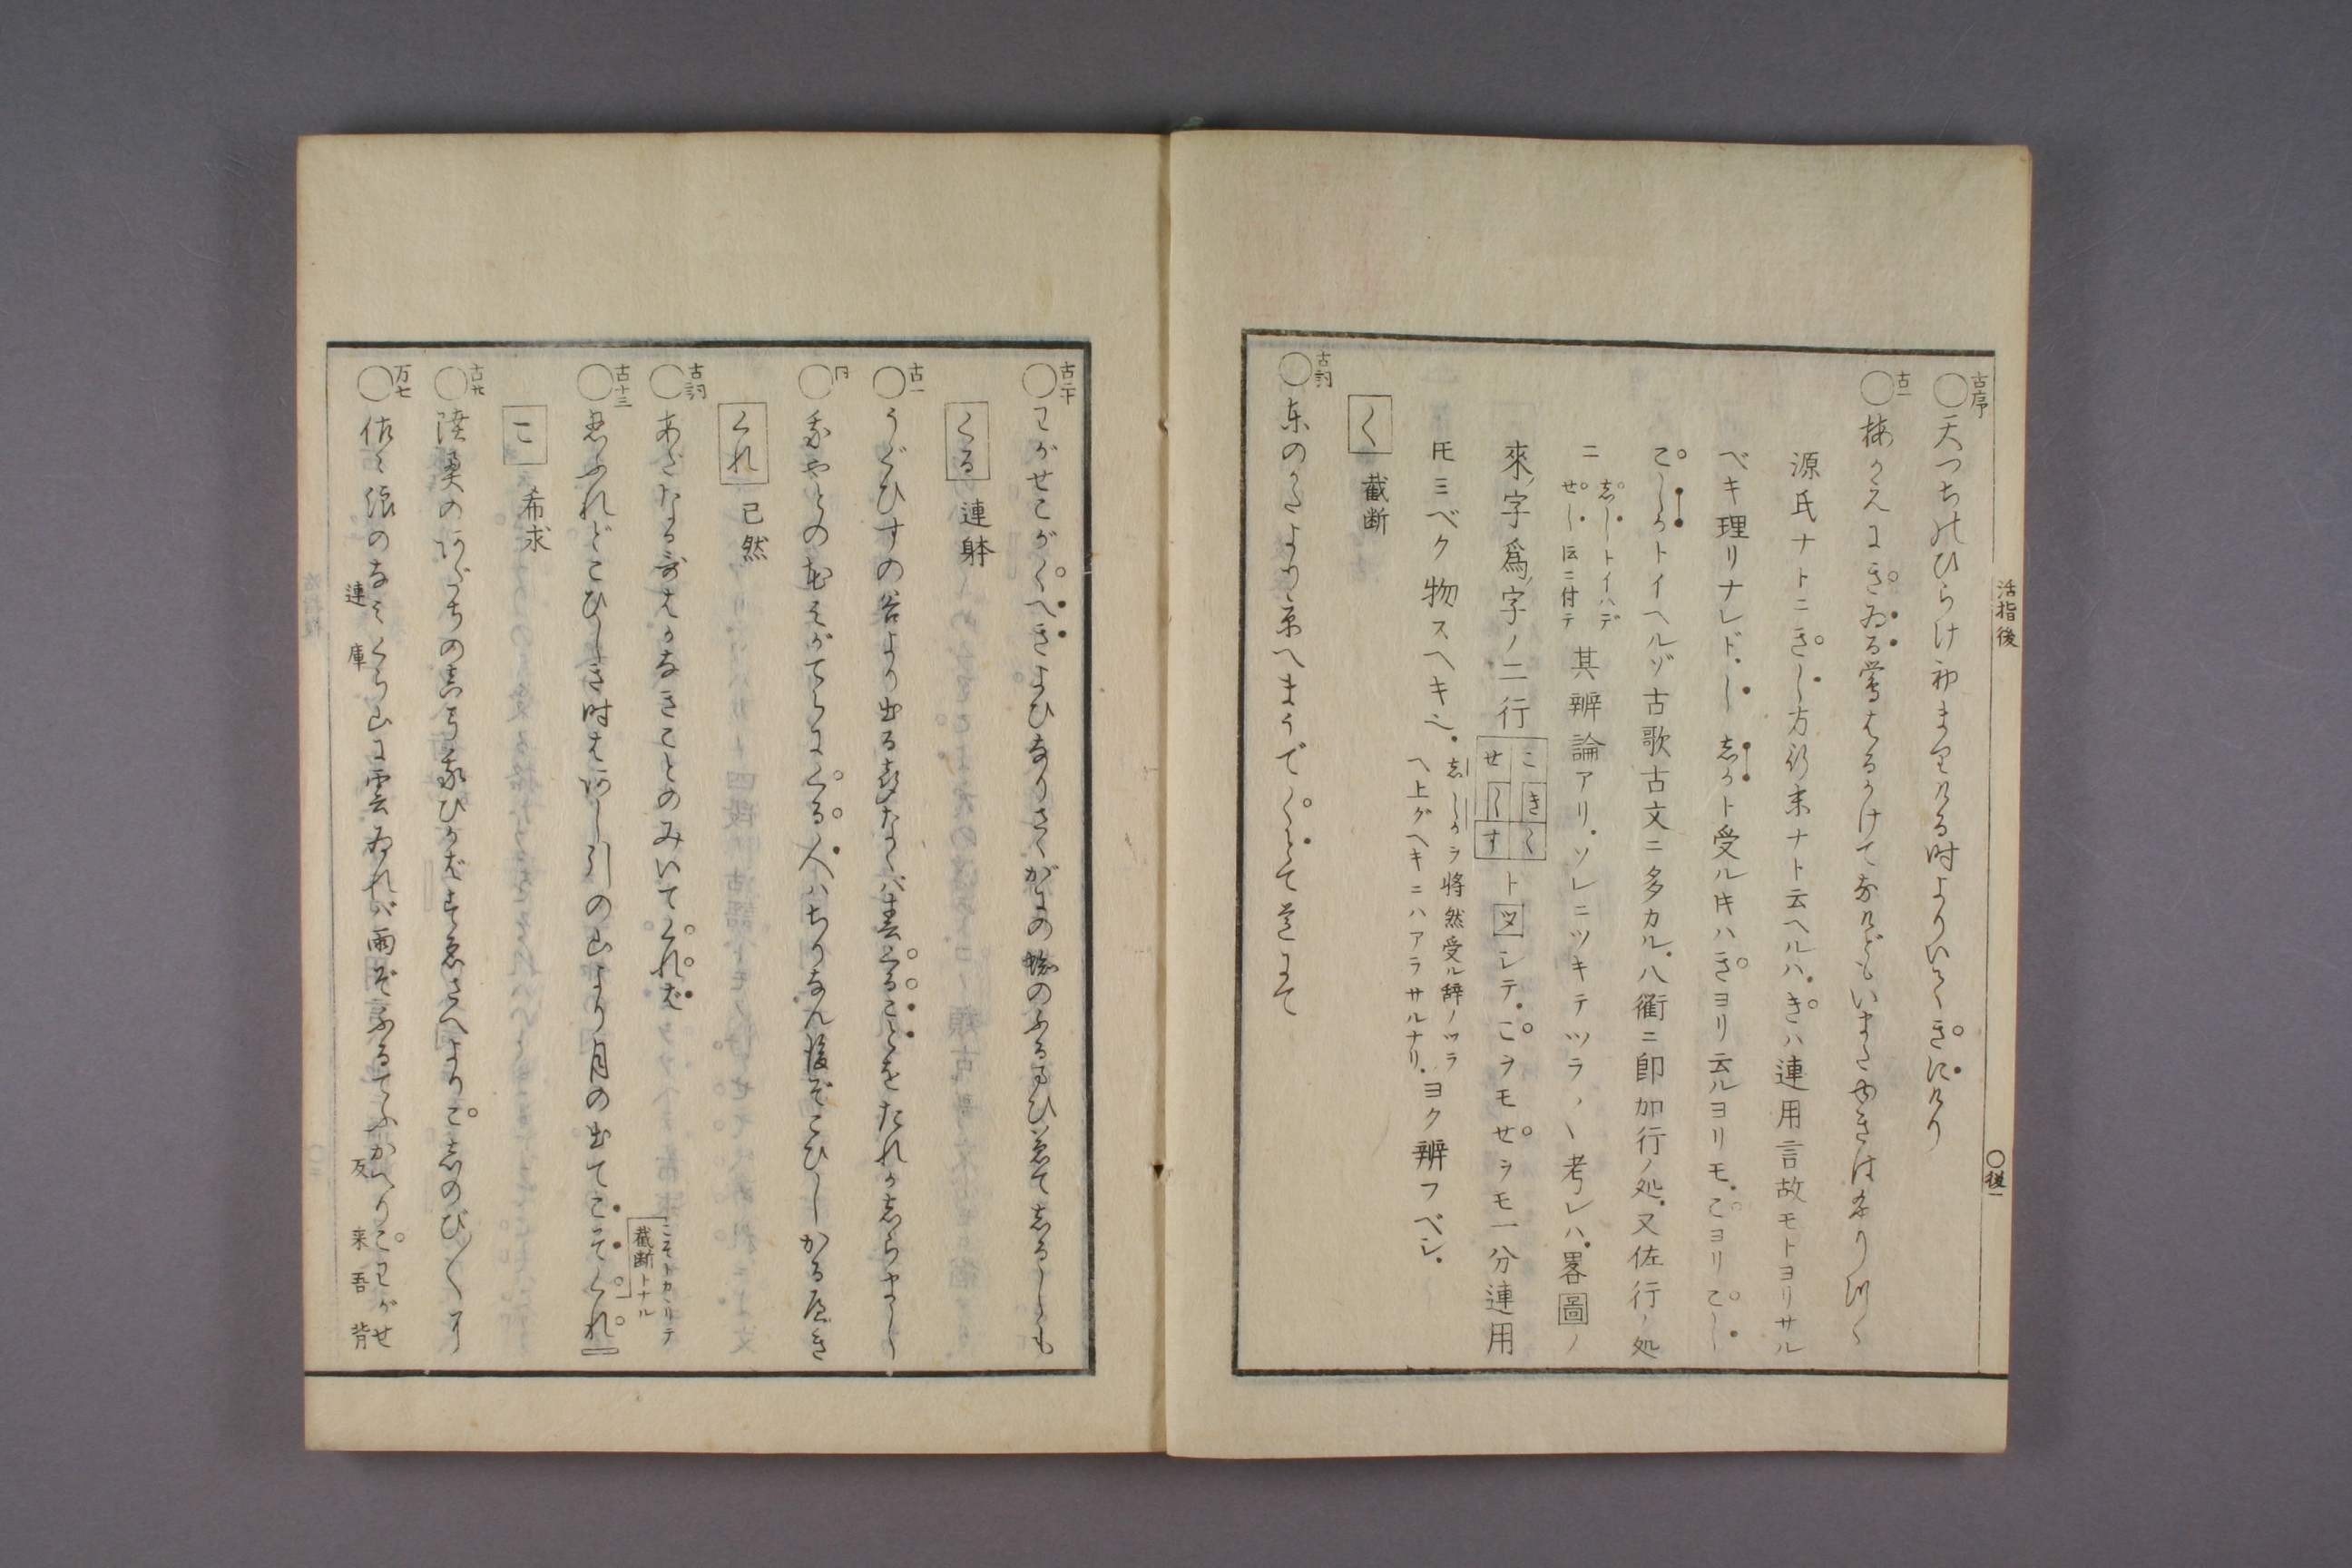 活指後
〇後一
古序
〇天つちのひらけ初まりける時よりいできにけり
古一
〇梅がえにきゐる鶯はるかけてなけどもいまだゆきはふりつゝ
源氏ナトニきし方行末ナト云ヘルハ.きハ連用言故モトヨリサル
ベキ理リナレド.し しかト受ル时ハきヨリ云ルヨリモ.こヨリこし
こしかトイヘルゾ古歌古文ニ多カル.八衢ニ即加行ノ処.又佐行ノ処
ニ しートイハデ せしニ付テ 其辨論アリ.ソレニツキテツラ〳〵考レハ.畧圖ノ
來ノ字爲ノ字ノ二行 こきく せしす ト図シテ.こヲモせヲモ一分連用
トモミベク物スヘキ也.ししかヲ将然受ル辞ノツラヘ上グヘキニハアラサルナリ.ヨク辨フベシ.
く 截断
古詞
〇東のかたより京へまうでくとて道にて
古二十
〇わがせこがくべきよひなりさゝがにの蜘のふるまひかねてしるしも
くる 連躰
古一
〇うぐひすの谷より出る声なくば春くることをたれかしらまし
同
〇我やどの花みがてらにくる人はちりなん後ぞこひしかるべき
くれ 已然
古詞
〇あだなる哥はかなきことのみいでくれば
古十三
〇君しのぶれどこひしき時はあし引の山より月の出てこそくれ
こそトカヽリテ
截断トナル
こ 希求
古廿
〇陸奥のあだちのま弓我ひかばすゑさへよりこしのび〳〵に
万七
〇佐々浪のなみくら山に雲ゐれば雨ぞふるてふかへりこわがせ
連 庫 反 来 吾 背